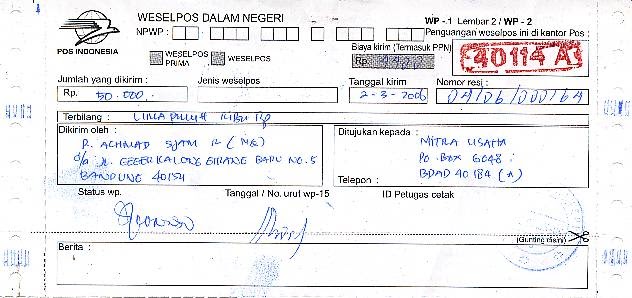 WESELPOS DALAM NEGERI
WP -.1 Lembar 2 / WP - 2
NPWP :
Penguangan weselpos ini di kantor Pos :
POS INDONESIA
WESELPOS PRIMA
WESELPOS
Biaya kirim (Termasuk PPN)
Rp.
40114 A
Jumlah yang dikirim :
Jenis weselpos
Tanggal kirim
Nomor resi :
Rp. 50.000,-
2-3-2006
04/06/000/64
Terbilang : LIMA PULUH RIBU Rp
Dikirim oleh :
Ditujukan kepada :
R. ACHMAD SJAM R
d/a Jl. GEGERKALONG GIRANG BARU NO. 5
BANDUNG 40154
MITRA USAHA
PO. BOX 6048
Telepon :
BDAD 40184 (A)
Status wp.
Tanggal / No. urut wp-15
ID Petugas cetak
(Gunting disini)
Berita :